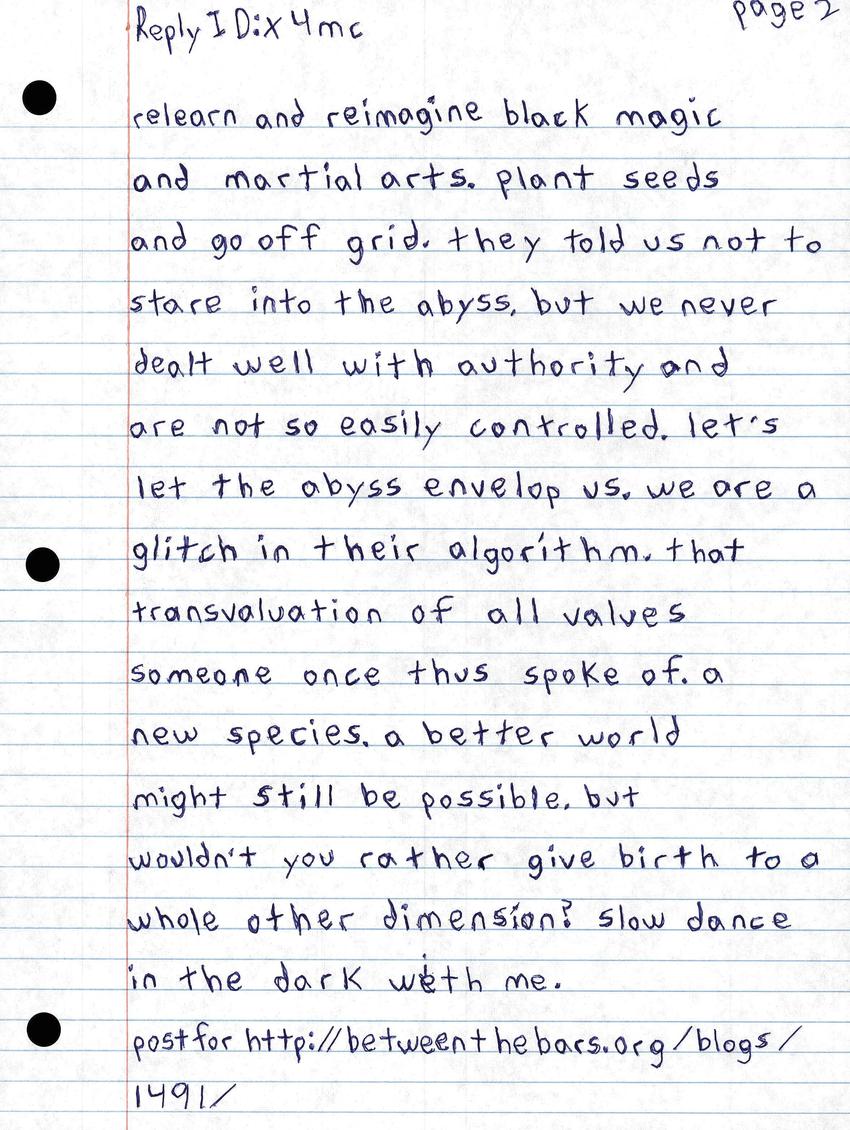 Reply ID: x4mc
page 2
relearn and reimagine black magic
and martial arts. plant seeds
and go off grid. they told us not to
stare into the abyss, but we never
dealt well with authority and
are not so easily controlled. let's
let the abyss envelop us. we are a
glitch in their algorithm. that
transvaluation of all values
someone once thus spoke of. a
new species. a better world
might still be possible, but
wouldn't you rather give birth to a
whole other dimension? slow dance
in the dark with me.
post for http://betweenthebars.org/blogs/
1491/